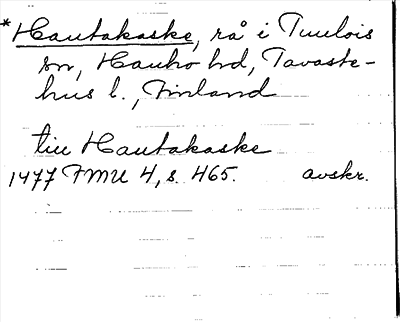 *Hautakaske, rå i Tuulois
sn, Hauho hd, Tavaste-
hus l., Finland
till Hautakaske
1477 FMU 4, s. 465. avskr.